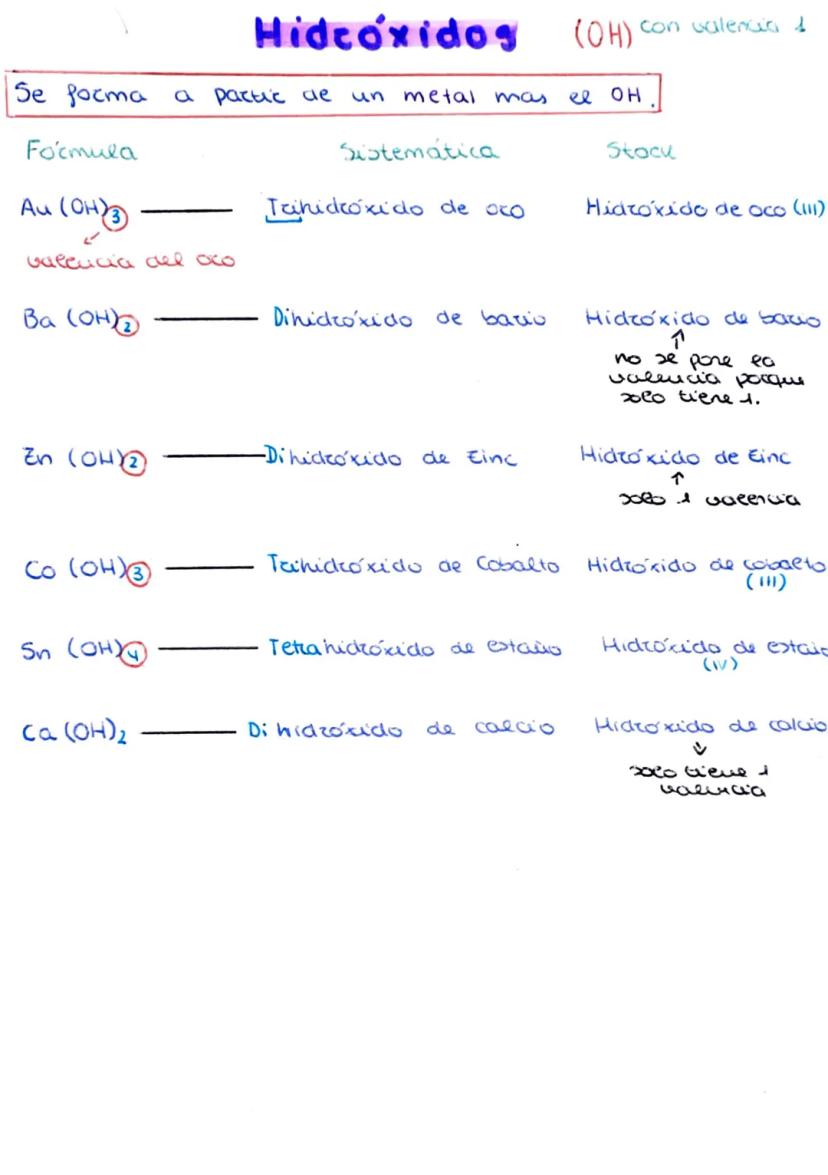 Hidróxidos (OH) con valencia 1
Se forma a partir de un metal mas el OH.
Fórmula Sistemática Stock
Au (OH)3 Trihidróxido de oro Hidróxido de oro (III)
valencia del oro
Ba (OH)2 Dihidróxido de bario Hidróxido de bario
no se pone la
valencia porque
solo tiene 1.
Zn (OH)2 Dihidróxido de Zinc Hidróxido de Zinc
solo 1 valencia
Co (OH)3 Trihidróxido de Cobalto Hidróxido de cobalto
(III)
Sn (OH)4 Tetrahidróxido de estaño Hidróxido de estaño
(IV)
Ca (OH)2 Dihidróxido de calcio Hidróxido de calcio
solo tiene 1
valencia